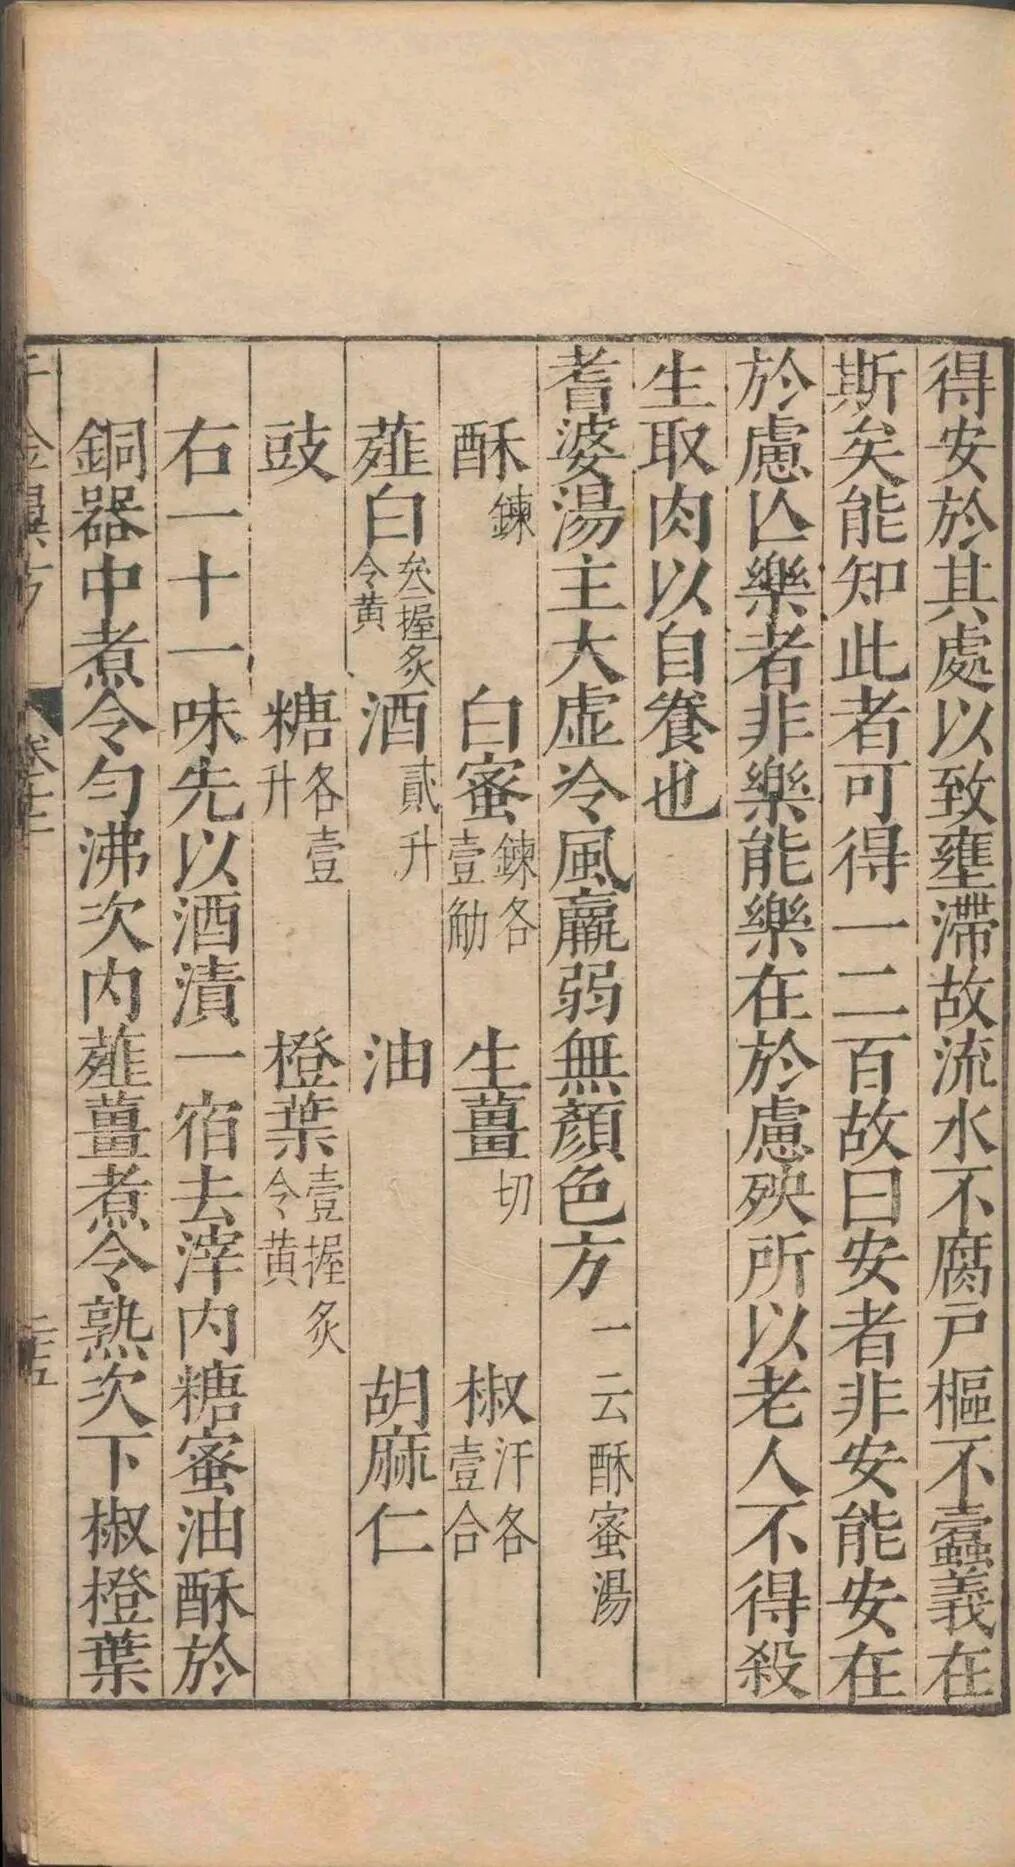 得安於其處以致壅滯故流水不腐戶樞不蠹義在
斯矣能知此者可得一二百故曰安者非安能安在
於慮亾樂者非樂能樂在於慮殃所以老人不得殺
生取肉以自養也
耆婆湯主大虛冷風羸弱無顏色方一云酥蜜湯
酥鍊 白蜜鍊各壹觔 生薑切 椒汗各壹合
薤白叁握炙令黃 酒貳升 油 胡麻仁
豉 糖各壹升 橙葉壹握炙令黃
右一十一味先以酒漬一宿去滓内糖蜜油酥於
銅器中煮令勻沸次内薤薑煮令熟次下椒橙葉
千金翼方 卷十二 二十五